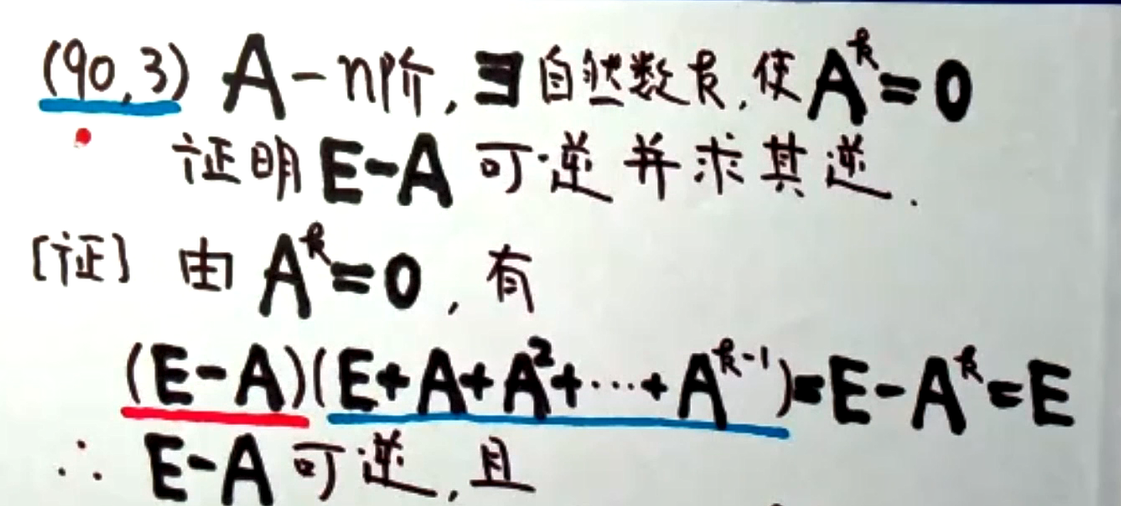 (90,3) A-n阶,∃自然数k,使A^k=0
证明E-A可逆并求其逆.
[证] 由A^k=0,有
(E-A)(E+A+A²+…+A^{k-1})=E-A^k=E
∴ E-A可逆,且